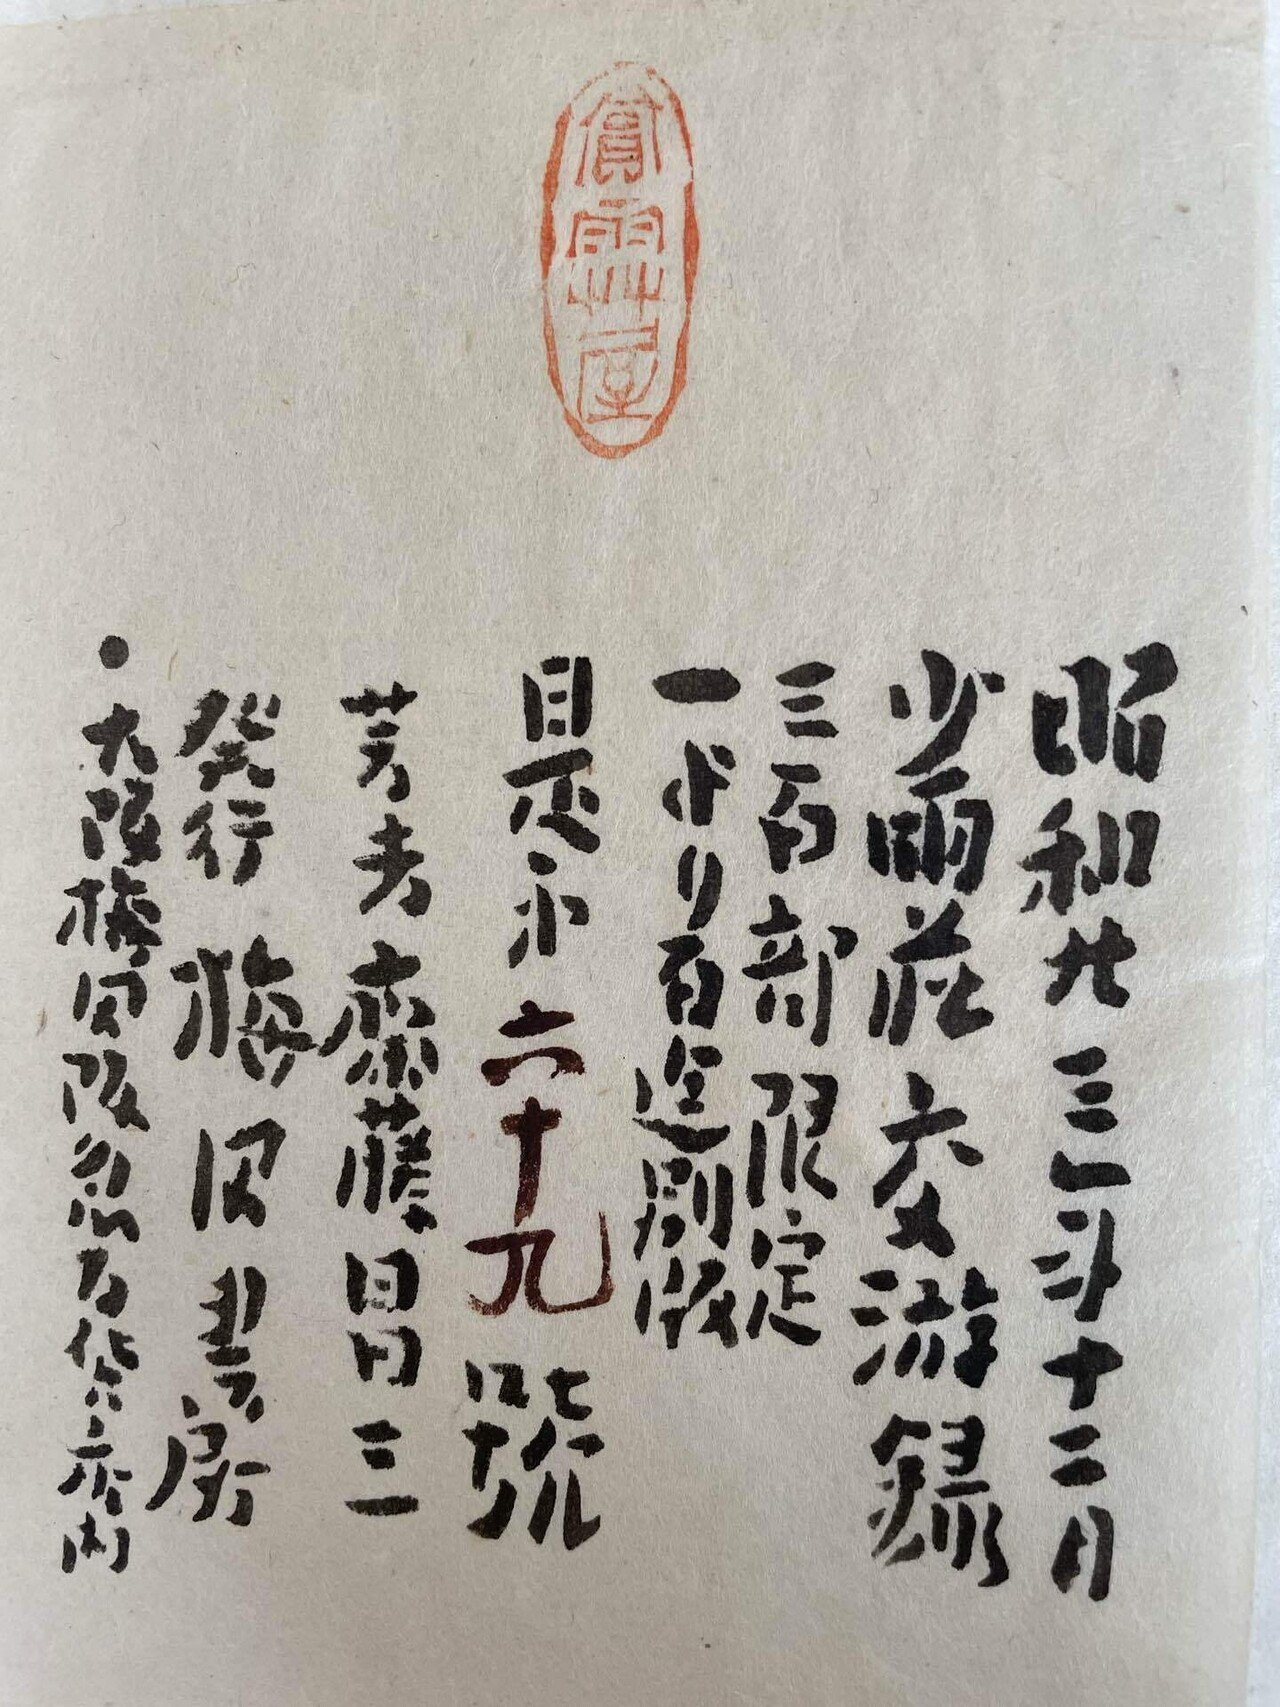 昭和廿三年十二月
少雨荘交游録
三百部限定
一より百迄別版
是本六十九號
著者齋藤昌三
発行梅田書房
・大阪梅田阪急百貨店内